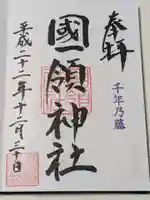 奉拝
千年乃藤
國領神社
平成二十二年十二月三十日